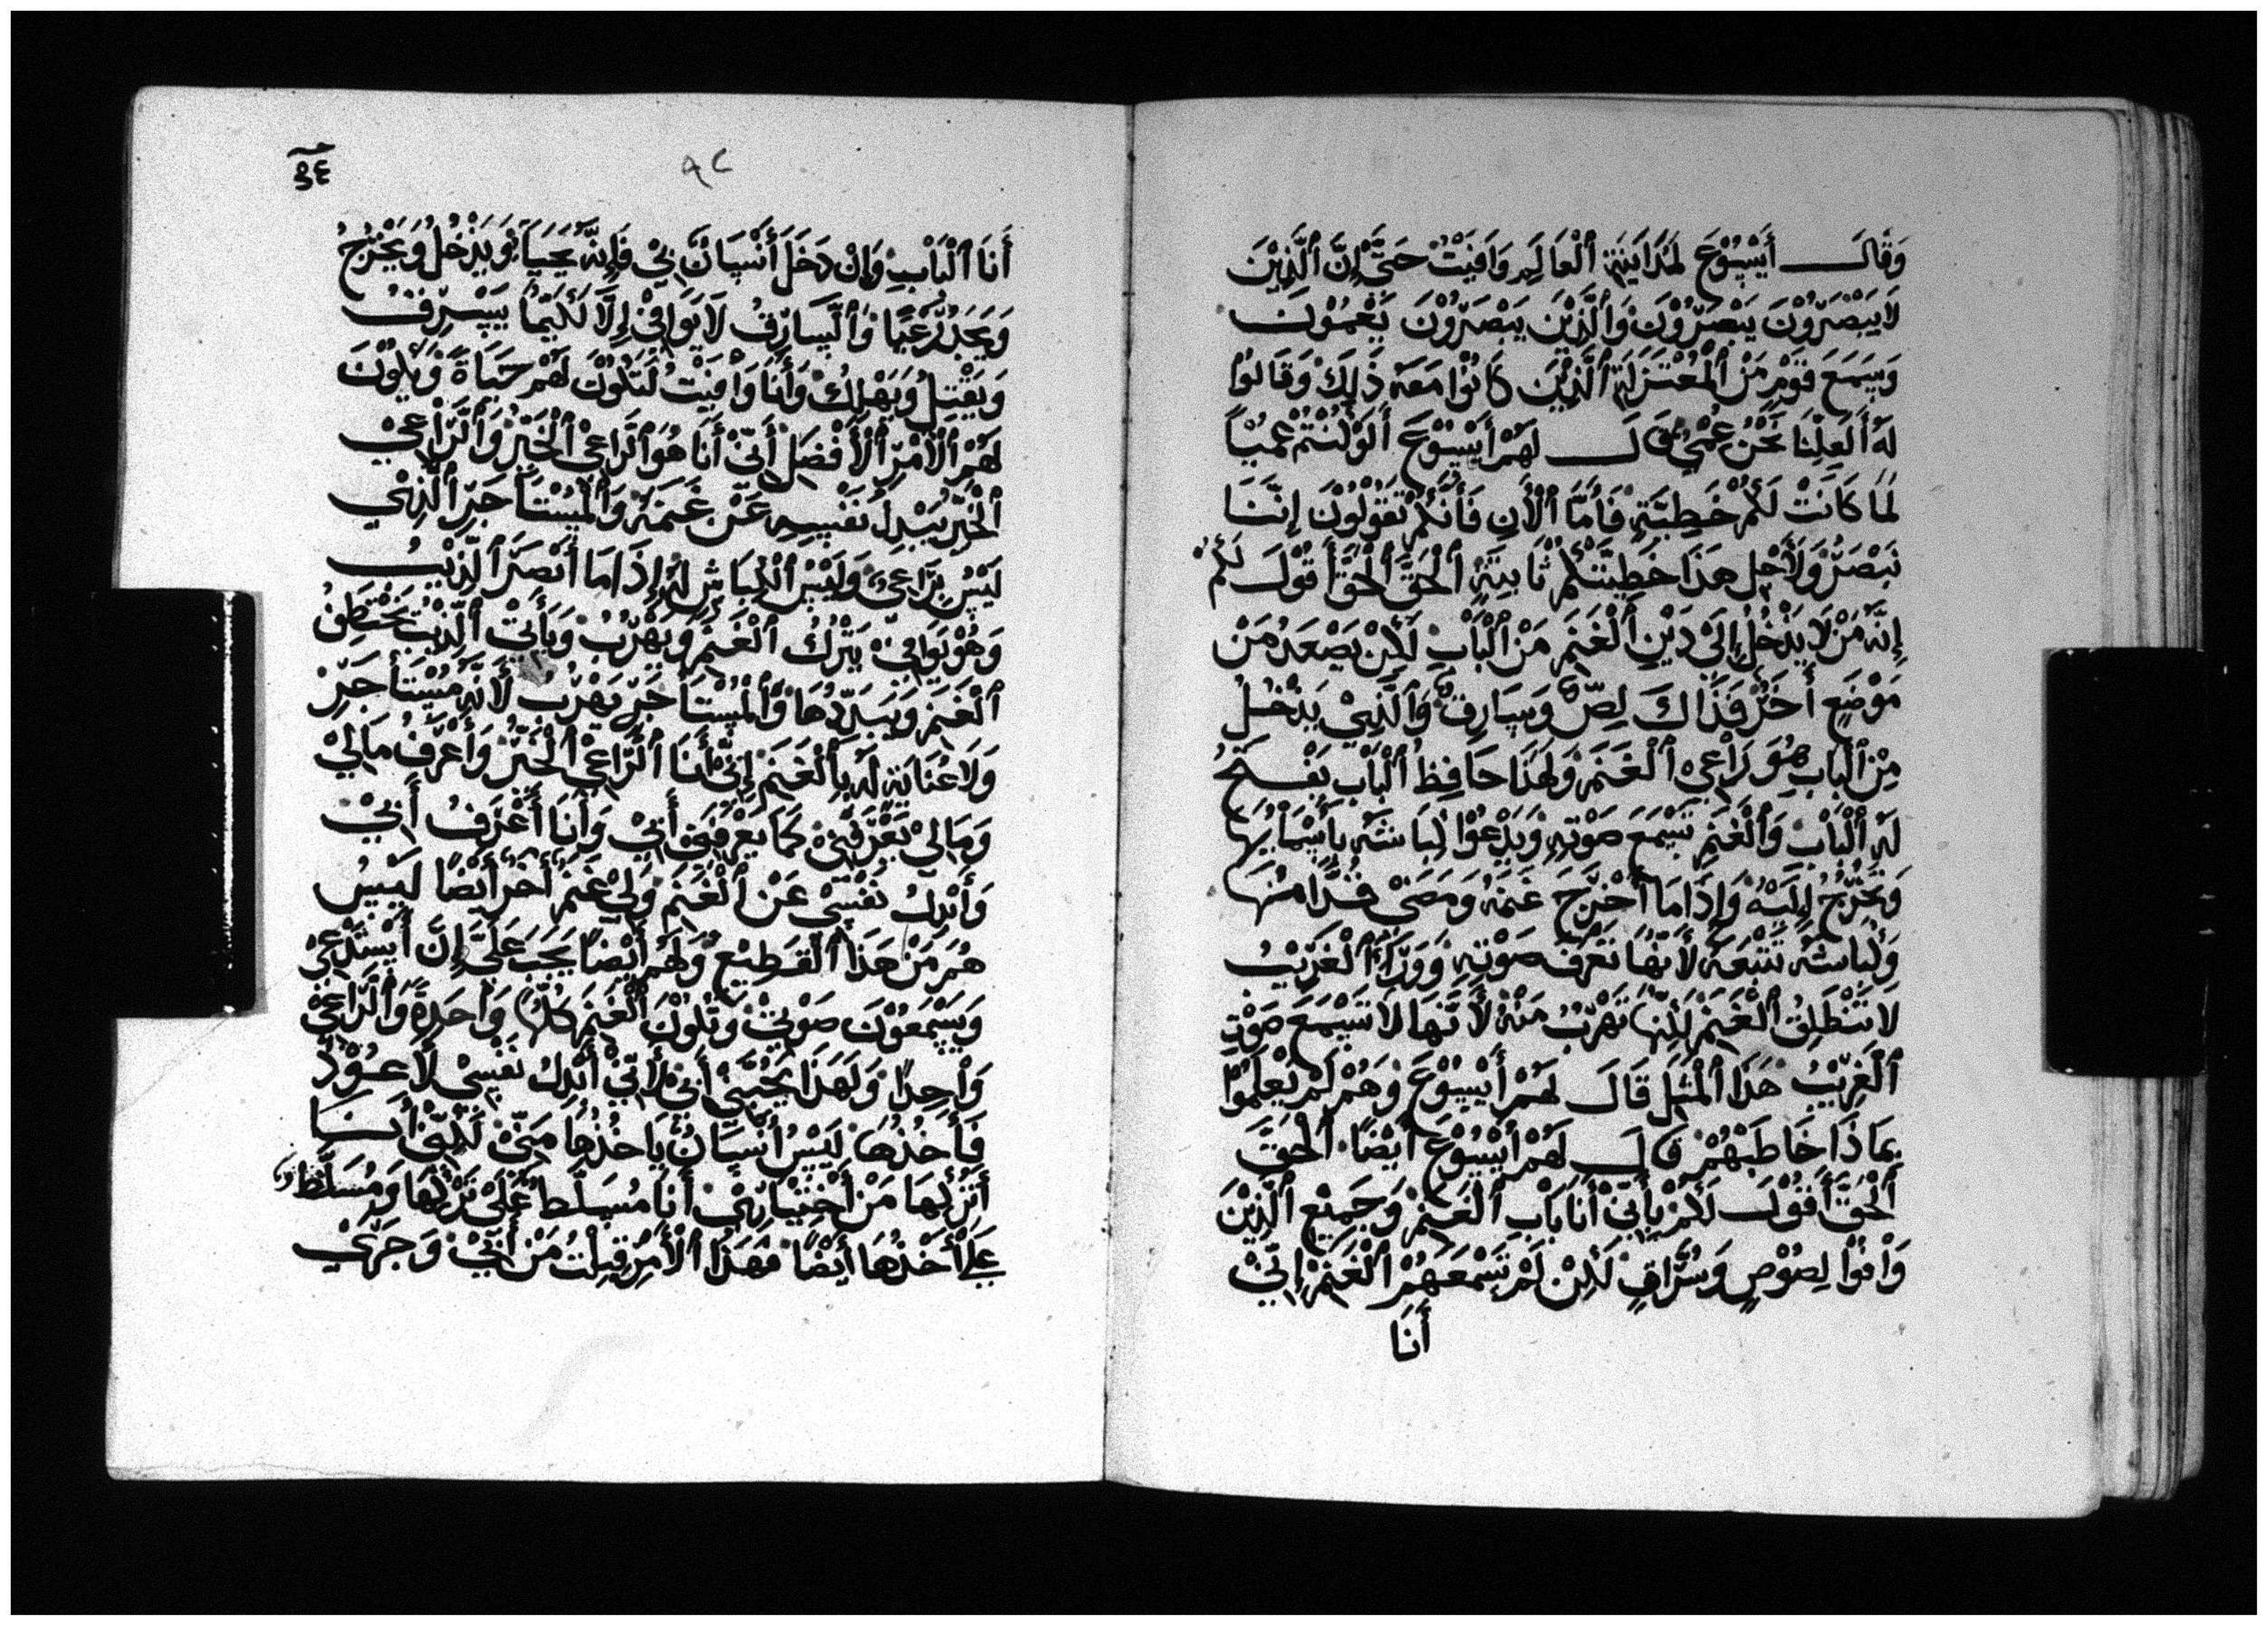 وَقَالَ أَيْسُوْعَ لِمُدَايَنَةِ ٱلْعَالَمِ وَافَيْتُ حَتَّىْ إِنَّ ٱلَّذِيْنَ
لَا يَبْصَرُوْنَ يَبْصَرُوْنَ وَٱلَّذِيْنَ يَبْصَرُوْنَ يَعْمَوْنَ
وَيَسَمَعَ قَوْمٍ مَنْ ٱلْمُعْتَزَلَةِ ٱلَّذِيْنَ كَانُوْا مَعَهُ ذَلِكَ وَقَالُوْا
لَهُ أَلَعِلْنَا نَحْنُ عُمْيٌ قَالَ لَهُمْ أَيْسُوْعَ أَلَوْ كُنْتُمْ عُمْيًا
لَمَا كَانَتْ لَكُمْ خَطِيَّةٍ فَأَمَّا ٱلْأَنِ فَأَنَّكُمْ تَقُوْلُوْنَ إِنَّنَا
نَبْصَرُ وَلِأَجْلِ هَذَا خَطِيَّتُكُمْ ثَابِتَةٍ ٱلْحَقَّ ٱلْحَقَّ أَقُوْلَ لَكُمْ
إِنَّهُ مَنْ لَا يَدْخُلُ إِلَىْ دَيْنِ ٱلْغَنَمِ مَنْ ٱلْبَابِ لَكِنْ يَصْعَدُ مَنْ
مَوْضَعٍ أَخَرْ فَذَاكَ لِصٌّ وَسَارِقٌ وَٱلَّذِيْ يَدْخُلُ
مِنْ ٱلْبَابِ هُوَ رَاْعِيْ ٱلْغَنَمِ وَلِهَذَا حَافِظُ ٱلْبَابِ يَفْتَحُ
لَهُ ٱلْبَابْ وَٱلْغَنَمِ تَسْمَعَ صَوْتِهِ وَيَدْعُوْا كِبَاشَهُ بِأَسْمَايِهَا
وَتَخْرُجُ إِلَيْهُ وَإِذَا مَا أَخْرَجَ غَنَمَهُ وَمَضَىْ قُدَّامُهَا
وَكِبَاشَهُ تَتْبَعَهُ لِأَنَّهَا تَعْرَفُ صَوْتِهِ وَوَرَاْءَ ٱلْغَرِيْبُ
لَا تَنْطَلِقُ ٱلْغَنَمُ لَكِنَّهَا تَهْرَبُ مَنْهُ لِأَنَّهَا لَا تَسْمَعَ صَوْتِ
ٱلْغَرِيْبُ هَذَا ٱلْمَثَلَ قَالَ لَهُمْ أَيْسُوْعَ وَهُمْ لَمْ يَعْلَمُوْا
بِمَاذَا خَاطَبْهُمْ قَالَ لَهُمْ أَيْسُوْعَ أَيْضًا ٱلْحَقَّ
ٱلْحَقَّ أَقُوْلَ لَكُمْ بِأَنِّيْ أَنَا بَابِ ٱلْغَنَمِ وَجَمِيْعِ ٱلَّذِيْنَ
وَاْفَوْا لِصُوْصٍ وَسُرَّاقٍ لَكِنْ لَمْ تَسْمَعَهُمْ ٱلْغَنَمْ إِنِّيْ
أَنَا
٩٢
أَنَا ٱلْبَابِ وَإِنْ دَخَلَ أَنْسَانٌ بِيْ فَإِنَّهُ يَحْيَا وَيَدْخُلُ وَيَخْرُجُ
وَيَجَدُ رَعْيًا وَٱلسَّارِقُ لَا يَوَافِيْ إِلَّا لَكَيْمَا يَسْرِقُ
وَيَقْتِلُ وَيَهْلِكْ وَأَنَا وَافَيْتُ لَتَكُوْنَ لَهُمْ حَيَاةً وَيَكُوْنَ
لَهُمْ ٱلْأَمْرْ ٱلْأَفْضَلْ أَنِّيْ أَنَا هُوَ ٱلرَّاعِيْ ٱلْخَيِّرْ وَٱلرَّاْعِيْ
ٱلْخَيِّرْ يَبْدِلُ نَفْسِهِ عَنْ غَنَمَهُ وَٱلْمُسْتَاْجَرِ ٱلَّذِيْ
لَيْسْ بِرَاعِيْ وَلَيْسْ ٱلْكِبَاشِ لَهُ إِذَا مَا أَبْصَرَ ٱلذِّيْبُ
وَهُوْ يَوَافِيْ يَتْرُكُ ٱلْغَنَمْ وَيَهْرُبْ وَيَأْتِيْ ٱلذِّيْبُ يَخْتَطِفُ
ٱلْغَنَمْ وَيَبَدِّدُهَا وَٱلْمُسْتَاْجَرِ يَهْرُبْ لِأَنَّهُ مُسْتَأْجَرِ
وَلَا عُنَايَةِ لَهُ بِٱلْغَنَمْ إِنِّيْ أَنَا ٱلرَّاْعِيْ ٱلْخَيِّرُ وَأَعْرَفُ مَالِيْ
وَمَالِيْ تَعْرَفُنِيْ كَمَا يَعْرَفَنِيْ أَبِيْ وَأَنَا أَعْرَفُ أَبِيْ
وَأَبْدِلُ نَفْسِيْ عَنْ ٱلْغَنَمْ وَلِيْ غَنَمْ أَخَرْ أَيْضًا لَيْسُ
هُمْ مَنْ هَذَا ٱلْقَطِيْعْ وَلَهُمْ أَيْضًا يَجَبَ عَلَيَّ إِنَّ أَسْتَدْعِيْ
وَيَسْمَعُوْنَ صَوْتِيْ وَتَكُوْنَ ٱلْغَنَمْ كُلَّهَا وَاْحَدِةً وَٱلرَّاْعِيْ
وَاْحِدًا وَلَهَذَا يَحْبُّنِيْ أَبِيْ لِأَنِّيْ أَبْدِلُ نَفْسِيْ لَأَعُوْدُ
فَأَخُذُهَا لَيْسُ أَنْسَانٌ يَاخُذُهَا مَنِّيْ لَكِنِّيْ أَنَا
أَتْرُكُهَا مَنْ أَخْتِيَارِيْ أَنَا مُسَلَّطْ عَلَىْ تَرْكَهَا وَمُسَلَّطْ
عَلَىْ أَخْذُهَا أَيْضًا فَهَذَا ٱلْأَمْرِ قِبِلْتُ مَنْ أَبِيْ وَجَرَىْ